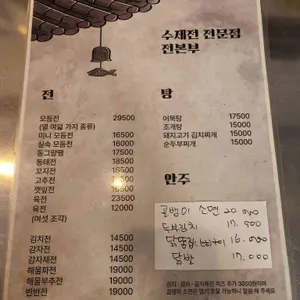 수제전 전문점
전본부
전
모듬전 29500
(열 여덟 가지 종류)
미니 모듬전 16500
실속 모듬전 26000
동그랑땡 17500
동태전 18500
꼬지전 18500
고추전 18500
깻잎전 18500
육전 23500
육전 12000
(여섯 조각)
김치전 14500
감자전 14500
감자채전 14500
해물파전 19000
해물부추전 19000
빈반전 19000
탕
어묵탕 17500
조개탕 15000
돼지고기 김치찌개 15000
순두부찌개 15000
안주
골뱅이 소면 20,000
두부김치 17,500
닭똥집볶음 16,000
닭발 17,000
김치, 감자, 감자채전 치즈 추가 3000원이며
골뱅이 소면은 맵기조절 가능하니 말씀 해 주세요